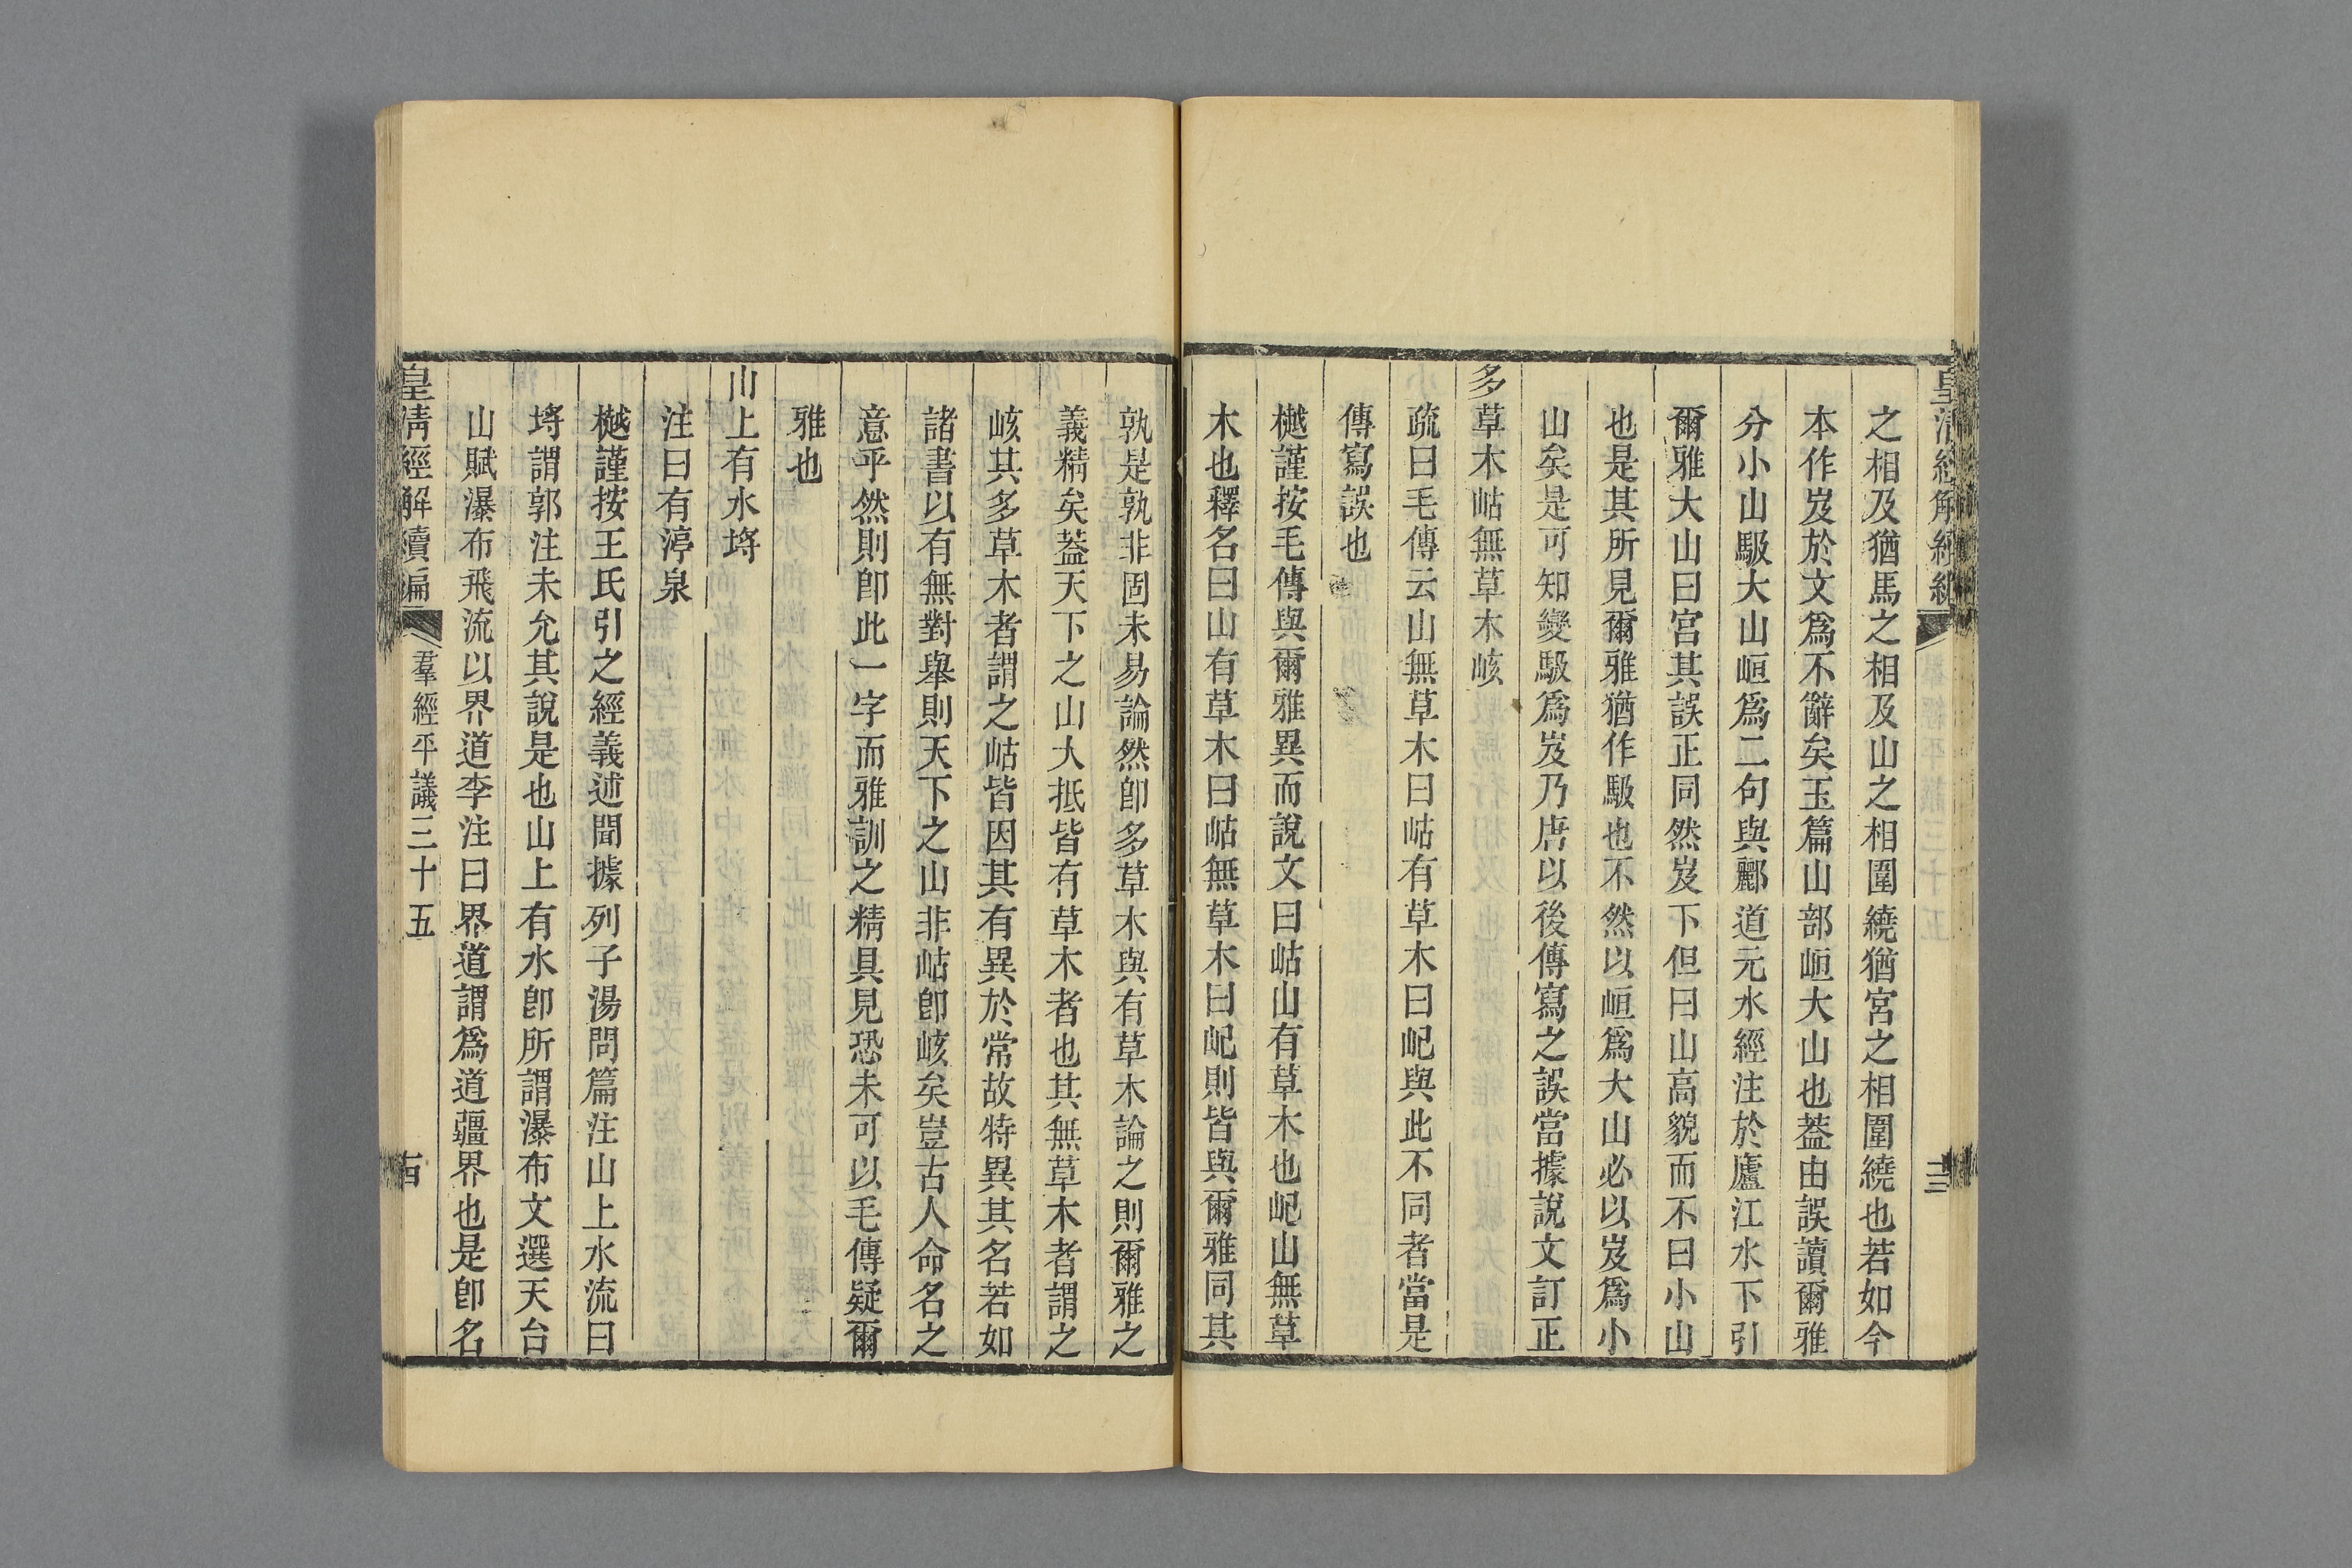 之相及猶馬之相及山之相圍繞猶宮之相圍繞也若如今
本作岌於文爲不辭矣玉篇山部峘大山也葢由誤讀爾雅
分小山馺大山峘爲二句與酈道元水經注於廬江水下引
爾雅大山曰宮其誤正同然岌下但曰山高貌而不曰小山
也是其所見爾雅猶作馺也不然以峘爲大山必以岌爲小
山矣是可知變馺爲岌乃唐以後傳寫之誤當據說文訂正
多草木岵無草木峐
疏曰毛傳云山無草木曰岵有草木曰屺與此不同者當是
傳寫誤也
樾謹按毛傳與爾雅異而說文曰岵山有草木也屺山無草
木也釋名曰山有草木曰岵無草木曰屺則皆與爾雅同其
孰是孰非固未易論然卽多草木與有草木論之則爾雅之
義精矣葢天下之山大抵皆有草木者也其無草木者謂之
峐其多草木者謂之岵皆因其有異於常故特異其名若如
諸書以有無對舉則天下之山非岵卽峐矣豈古人命名之
意乎然則卽此一字而雅訓之精具見恐未可以毛傳疑爾
雅也
山上有水埒
注曰有渟泉
樾謹按王氏引之經義述聞據列子湯問篇注山上水流曰
埒謂郭注未允其說是也山上有水卽所謂瀑布文選天台
山賦瀑布飛流以界道李注曰界道謂爲道疆界也是卽名
皇清經解續編
羣經平議三十五